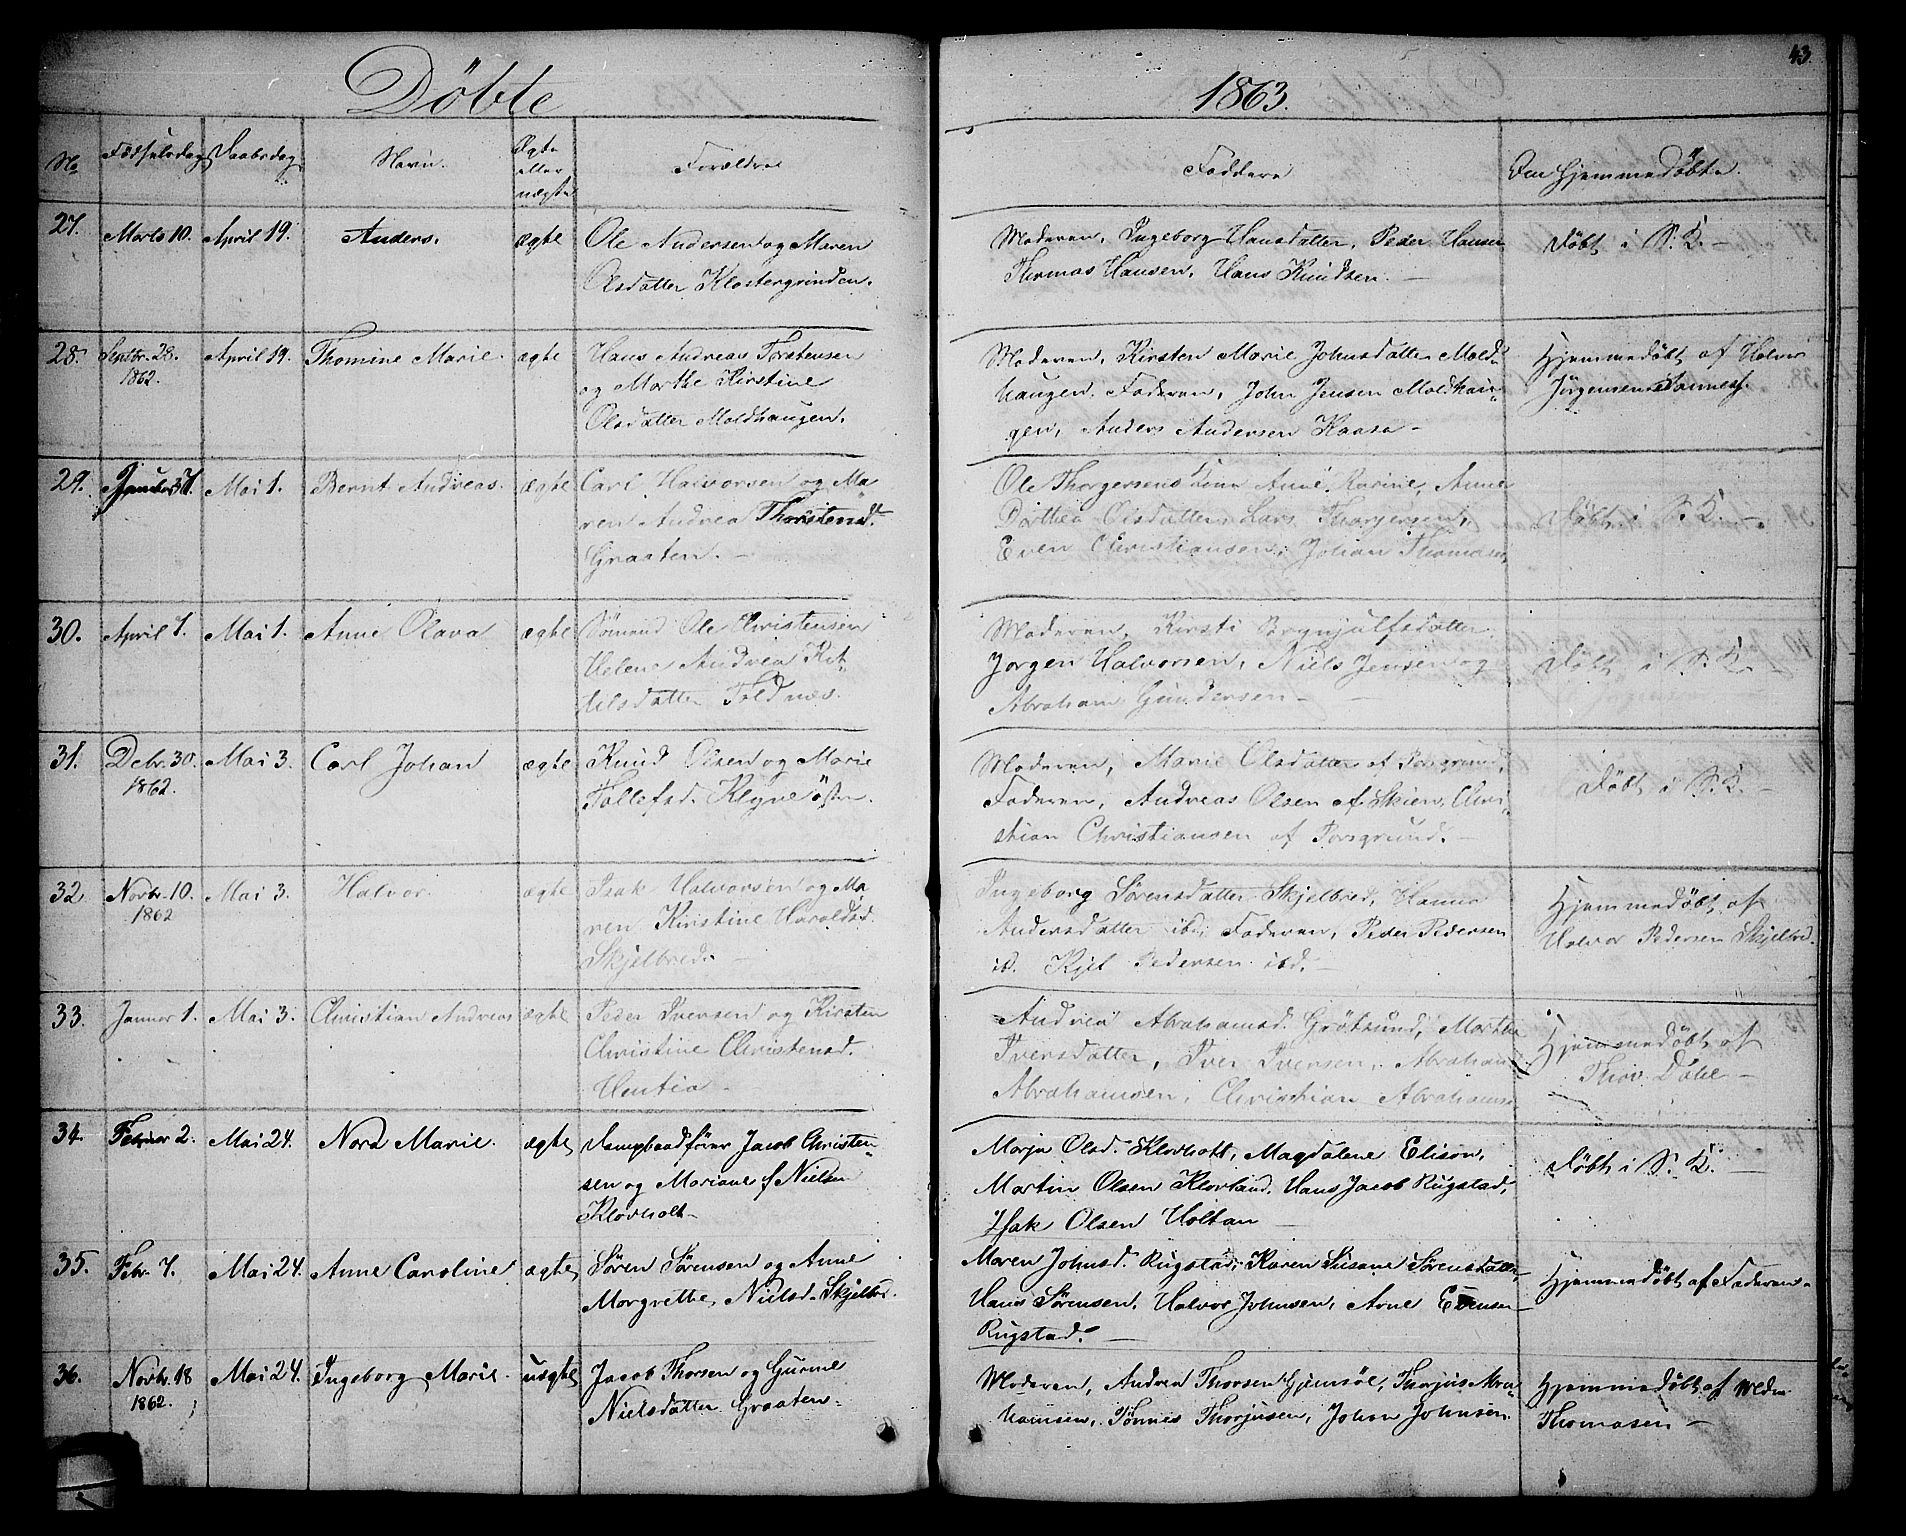 43.
Döbte
1863.
No
Födselsdag
Daabsdag
Navn.
Ægte eller uægte
Forældre
Faddere
Om Hjemmedöbte.
27. Marts 10. April 19. Anders. ægte Ole Andersen og Maren
Olsdatter Klostergrinden.
Moderen, Ingeborg Hansdatter, Peder Hansen
Thomas Hansen, Hans Knudsen. —
Döbt i S. K. —
28. Septbr. 28. April 19. Thomine Marie. ægte Hans Andreas Torstensen
1862. og Marthe Kirstine
Olsdatter Moldhaugen.
Moderen, Kirsten Marie Johnsdatter Mold-
haugen. Faderen, John Jensen Moldhau-
gen, Anders Andersen Kaasa —
Hjemmedöbt af Halvor
Jörgensen
29. Mai 1. Bernt Andreas. ægte Carl Halvorsen og Ma
ren Andrea Thorstensd.
Graaten. —
Ole Thorgersens Kone Anne Karine, Anne
Dorthea Olsdatter Lars Thorjersen,
Even Christiansen, Johan Thomasen,
Döbt i S. K. —
30. April 1. Mai 1. Anne Olava ægte Sömand Ole Christensen
Helene Andrea Ket-
ilsdatter Foldnæs.
Moderen, Kirsti Brynjulfsdatter
Jorgen Halvorsen, Niels Jensen og
Abraham Gundersen —
Döbt i S. K.
31. Debr. 30. Mai 3. Carl Johan ægte Knud Olsen og Marie
1862. Tollefsd. Klyve östre.
Moderen, Marie Olsdatter af Porsgrund,
Faderen, Andreas Olsen af Skien, Chri-
stian Christiansen af Porsgrund. —
Döbt i S. K. —
32. Novbr. 10. Mai 3. Halvor. ægte Isak Halvorsen og Ma
1862 ren Kirstine Haraldsd.
Skjelbred. —
Ingeborg Sörensdatter Skjelbred, Hanna
Andersdatter ib. Faderen, Peder Pedersen
ib. Kjel Pedersen ibd. —
Hjemmedöbt af
Halvor Pedersen Skjelbred.
33. Januar 1. Mai 3. Christian Andreas ægte Peder Iversen og Kirsten
Christine Christensd.
Andrea Abrahamsd. Grötsund, Marthe
Iversdatter, Iver Iversen, Abraham
Abrahamsen, Christian Abrahams
Hjemmedöbt af
Thov. Dahl —
34. Februar 2. Mai 24. Nora Marie. ægte Dampbaadförer Jacob Christen-
sen og Mariane f Nielsen
Klovholt —
Marja Olsd. Klovholt, Magdalene Elison,
Martin Olsen Klovland, Hans Jacob Rugstad,
Isak Olsen Holtan —
Döbt i S. K. —
35. Febr. 7. Mai 24. Anne Caroline ægte Sören Sörensen og Anne
Morgrethe, Nielsd. Skjelbrd.
Maren Johnsd. Rugstad, Karen Susane Sörensdatter,
Hans Sörensen, Halvor Johnsen, Arne Evensen
Rugstad. —
Hjemmedöbt af Faderen.
36. Novbr. 18 Mai 24. Ingeborg Marie. uægte Jacob Thorsen og Gurine
1862. Nielsdatter Graaten.
Moderen, Andrea Thorsen Gjemsöe, Thorjus Abra-
hamsen, Tönnes Thorjusen, Johan Johnsen.
Hjemmedöbt af
Thomasen —